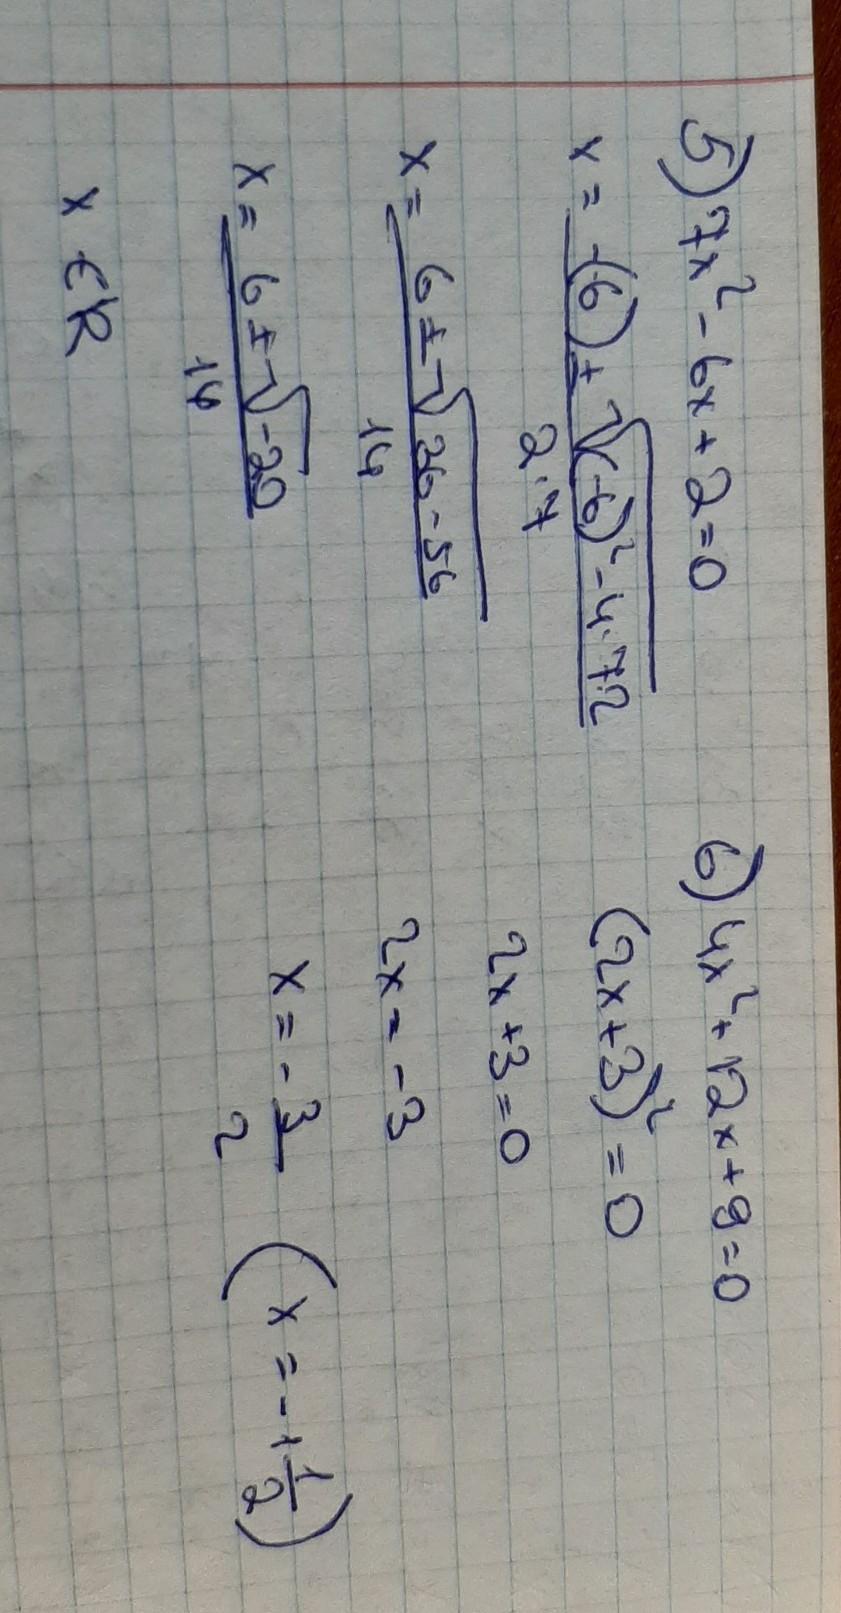 5) 7x² - 6x + 2 = 0
x = -(6) ± √(-6)² - 4·7·2 / 2·7
x = 6 ± √36 - 56 / 14
x = 6 ± √-20 / 14
x ∈ R
6) 4x² + 12x + 9 = 0
(2x + 3)² = 0
2x + 3 = 0
2x = -3
x = - 3/2 (x = -1 1/2)